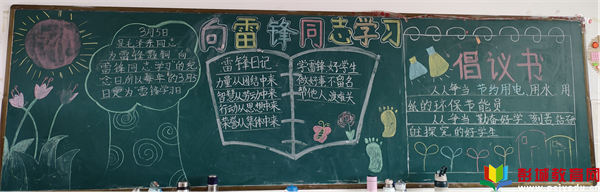 向雷锋同志学习
3月5日
是毛泽东同志
为雷锋题词"向
雷锋同志学习"的纪
念日,所以每年的3月5
日定为雷锋学习日
雷锋日记
力量从团结中来
智慧从劳动中来
行动从思想中来
荣誉从集体中来
学雷锋 好学生
做好事 不留名
帮他人 渡难关
倡议书
人人争当 节约用电,用水 用
纸的环保节能员
人人争当 勤奋好学
探究的好学生
彭城教育网